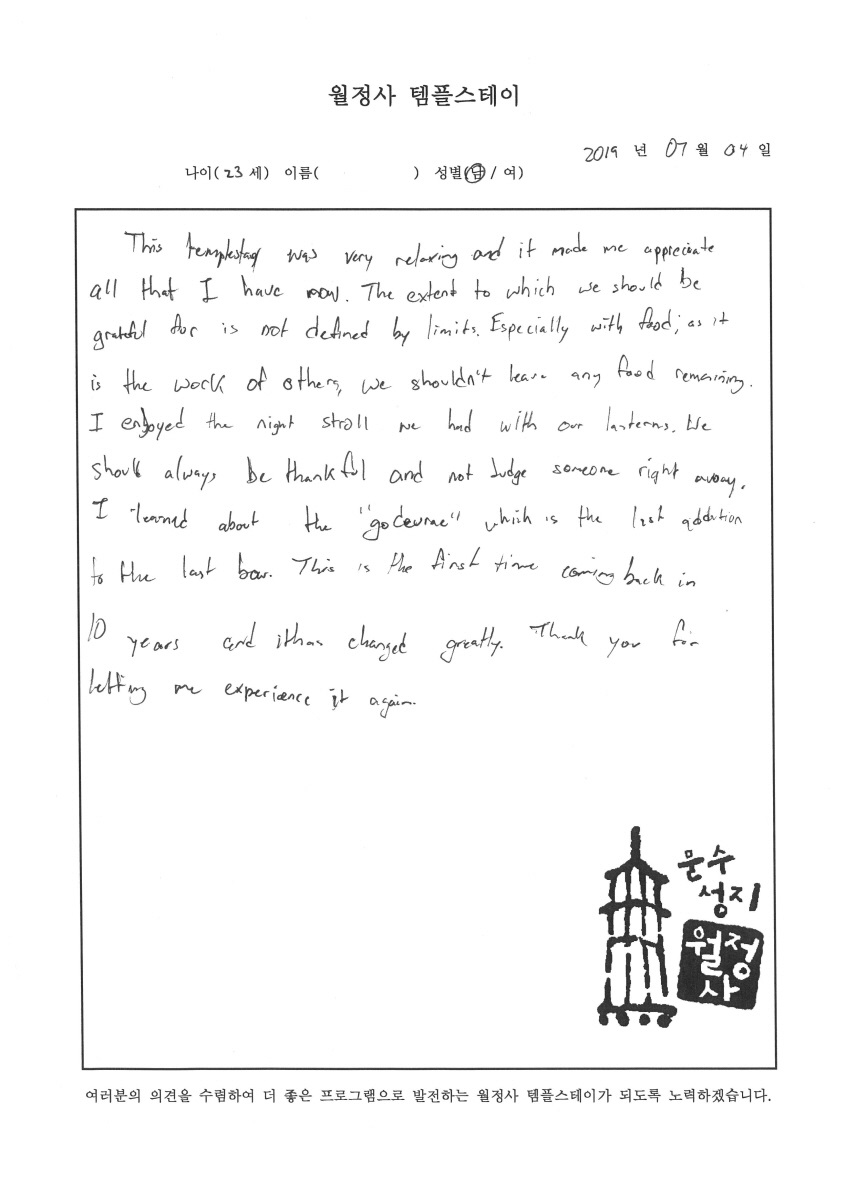 월정사 템플스테이
2019 년 07 월 04 일
나이(23 세) 이름( ) 성별(남/여)
This templestay was very relaxing and it made me appreciate
all that I have now. The extent to which we should be
grateful for is not defined by limits. Especially with food; as it
is the work of others, we shouldn't leave any food remaining.
I enjoyed the night stroll we had with our lanterns. We
should always be thankful and not Judge someone right away.
I learned about the " " which is the last addition
to the last bow. This is the first time coming back in
10 years and it has changed greatly. Thank you for
letting me experience it again.
문수
성지
월정
사
여러분의 의견을 수렴하여 더 좋은 프로그램으로 발전하는 월정사 템플스테이가 되도록 노력하겠습니다.